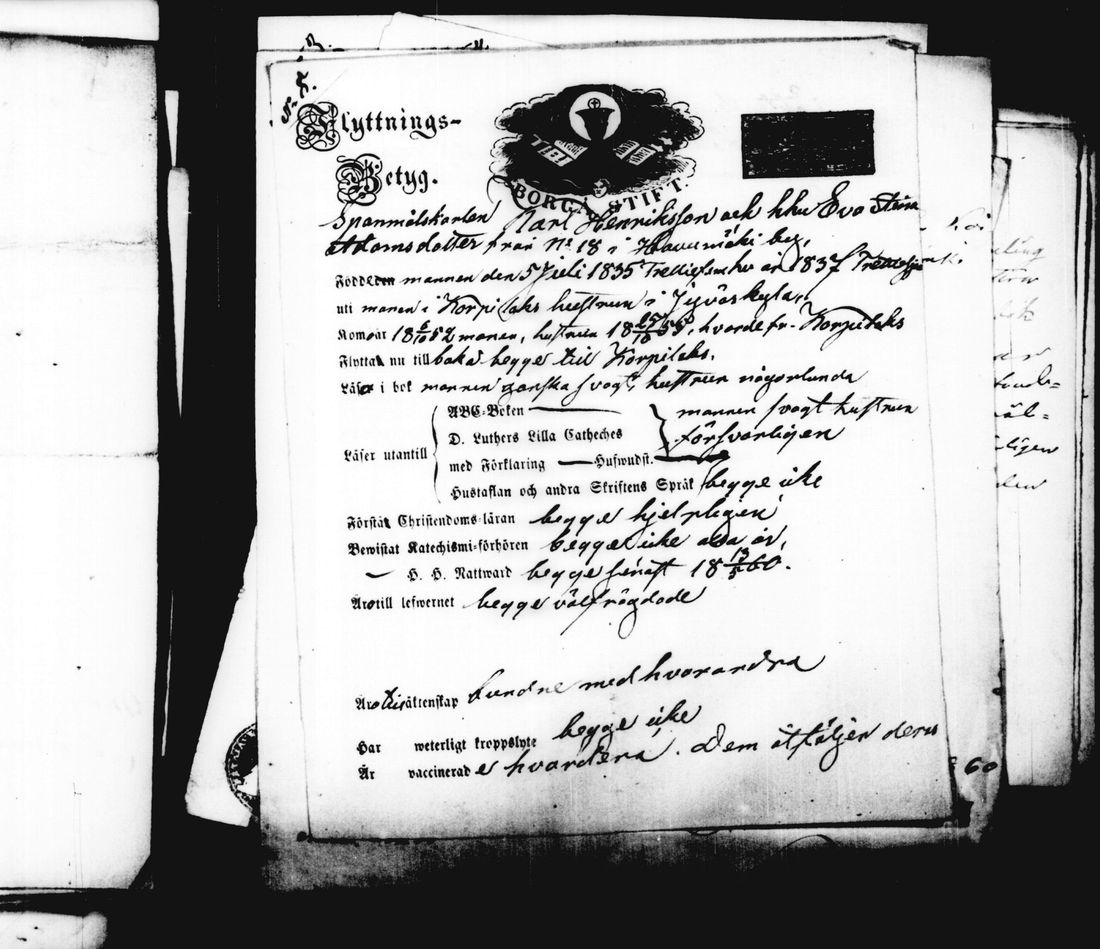 Flyttnings-
Betyg.
BORGÅ STIFT.
Spanmålskarlen Karl Henriksson och hhu Eva Stina
Adamsdotter från No 18 i Havumäki by,
Född mannen den 5 Juli 1835 Trettiofem hu år 1837 Trettiosju
uti manen i Korpilaks hustrun i Jyväskyla,
Kom år 18 52 manen, hustrun 18 55, hvarde fr. Korpilaks
Flytta nu till baka begge till Korpilaks.
Läser i bok mannen ganska svagt, hustrun någorlunda
Läser utantill
ABC-Boken mannen svagt hustrun
D. Luthers Lilla Catheches försvarligen
med Förklaring — Hufwudst.
Hustaflan och andra Skriftens Språk begge icke
Förstå Christendoms-läran begge hjelpligen
Bewistat Katechismi-förhören begge icke alla år,
H. H. Nattward begge senast 18 13/5 60.
Äro till lefwernet begge välfrägdade
Äro till ägtenskap bundne med hvarandra
Har weterligt kroppslyte begge icke
Är vaccinerade hvardera. Dem åtföljer deras
60